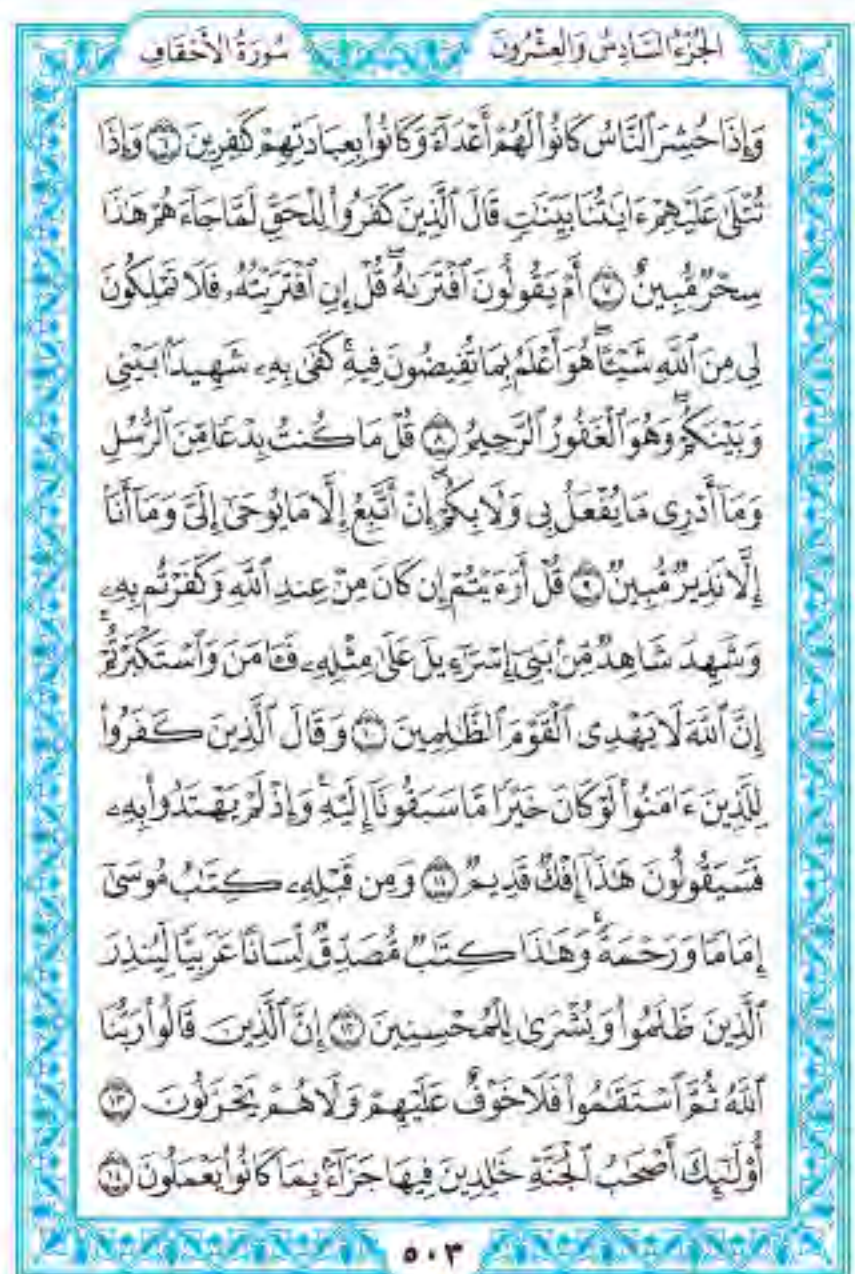 الجُزْءُ السَّادِسُ وَالعِشْرُونَ سُورَةُ الأَحْقَافِ
وَإِذَا حُشِرَ ٱلنَّاسُ كَانُوا۟ لَهُمْ أَعْدَآءً وَكَانُوا۟ بِعِبَادَتِهِمْ كَٰفِرِينَ ٦ وَإِذَا
تُتْلَىٰ عَلَيْهِمْ ءَايَٰتُنَا بَيِّنَٰتٍ قَالَ ٱلَّذِينَ كَفَرُوا۟ لِلْحَقِّ لَمَّا جَآءَهُمْ هَٰذَا
سِحْرٌ مُّبِينٌ ٧ أَمْ يَقُولُونَ ٱفْتَرَىٰهُ ۖ قُلْ إِنِ ٱفْتَرَيْتُهُۥ فَلَا تَمْلِكُونَ
لِى مِنَ ٱللَّهِ شَيْـًٔا ۖ هُوَ أَعْلَمُ بِمَا تُفِيضُونَ فِيهِ ۖ كَفَىٰ بِهِۦ شَهِيدًۢا بَيْنِى
وَبَيْنَكُمْ ۖ وَهُوَ ٱلْغَفُورُ ٱلرَّحِيمُ ٨ قُلْ مَا كُنتُ بِدْعًا مِّنَ ٱلرُّسُلِ
وَمَآ أَدْرِى مَا يُفْعَلُ بِى وَلَا بِكُمْ ۖ إِنْ أَتَّبِعُ إِلَّا مَا يُوحَىٰٓ إِلَىَّ وَمَآ أَنَا۠
إِلَّا نَذِيرٌ مُّبِينٌ ٩ قُلْ أَرَءَيْتُمْ إِن كَانَ مِنْ عِندِ ٱللَّهِ وَكَفَرْتُم بِهِۦ
وَشَهِدَ شَاهِدٌ مِّنۢ بَنِىٓ إِسْرَٰٓءِيلَ عَلَىٰ مِثْلِهِۦ فَـَٔامَنَ وَٱسْتَكْبَرْتُمْ ۖ
إِنَّ ٱللَّهَ لَا يَهْدِى ٱلْقَوْمَ ٱلظَّٰلِمِينَ ١٠ وَقَالَ ٱلَّذِينَ كَفَرُوا۟
لِلَّذِينَ ءَامَنُوا۟ لَوْ كَانَ خَيْرًا مَّا سَبَقُونَآ إِلَيْهِ ۚ وَإِذْ لَمْ يَهْتَدُوا۟ بِهِۦ
فَسَيَقُولُونَ هَٰذَآ إِفْكٌ قَدِيمٌ ١١ وَمِن قَبْلِهِۦ كِتَٰبُ مُوسَىٰٓ
إِمَامًا وَرَحْمَةً ۚ وَهَٰذَا كِتَٰبٌ مُّصَدِّقٌ لِّسَانًا عَرَبِيًّا لِّيُنذِرَ
ٱلَّذِينَ ظَلَمُوا۟ وَبُشْرَىٰ لِلْمُحْسِنِينَ ١٢ إِنَّ ٱلَّذِينَ قَالُوا۟ رَبُّنَا
ٱللَّهُ ثُمَّ ٱسْتَقَٰمُوا۟ فَلَا خَوْفٌ عَلَيْهِمْ وَلَا هُمْ يَحْزَنُونَ ١٣
أُو۟لَٰٓئِكَ أَصْحَٰبُ ٱلْجَنَّةِ خَٰلِدِينَ فِيهَا جَزَآءًۢ بِمَا كَانُوا۟ يَعْمَلُونَ ١٤
٥٠٣